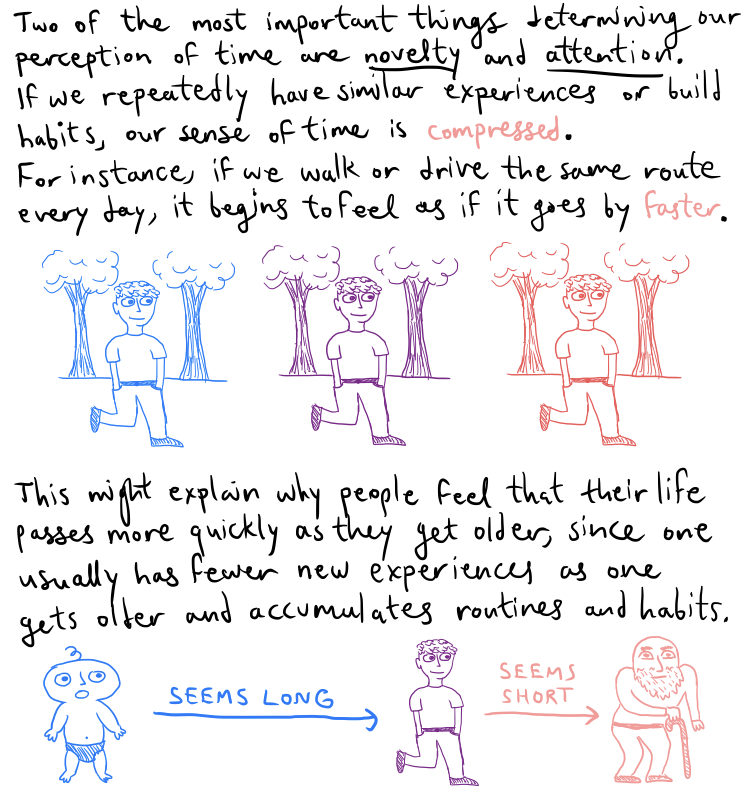 Two of the most important things determining our
perception of time are novelty and attention.
If we repeatedly have similar experiences or build
habits, our sense of time is compressed.
For instance, if we walk or drive the same route
every day, it begins to feel as if it goes by faster.
This might explain why people feel that their life
passes more quickly as they get older, since one
usually has fewer new experiences as one
gets older and accumulates routines and habits.
SEEMS LONG
SEEMS
SHORT